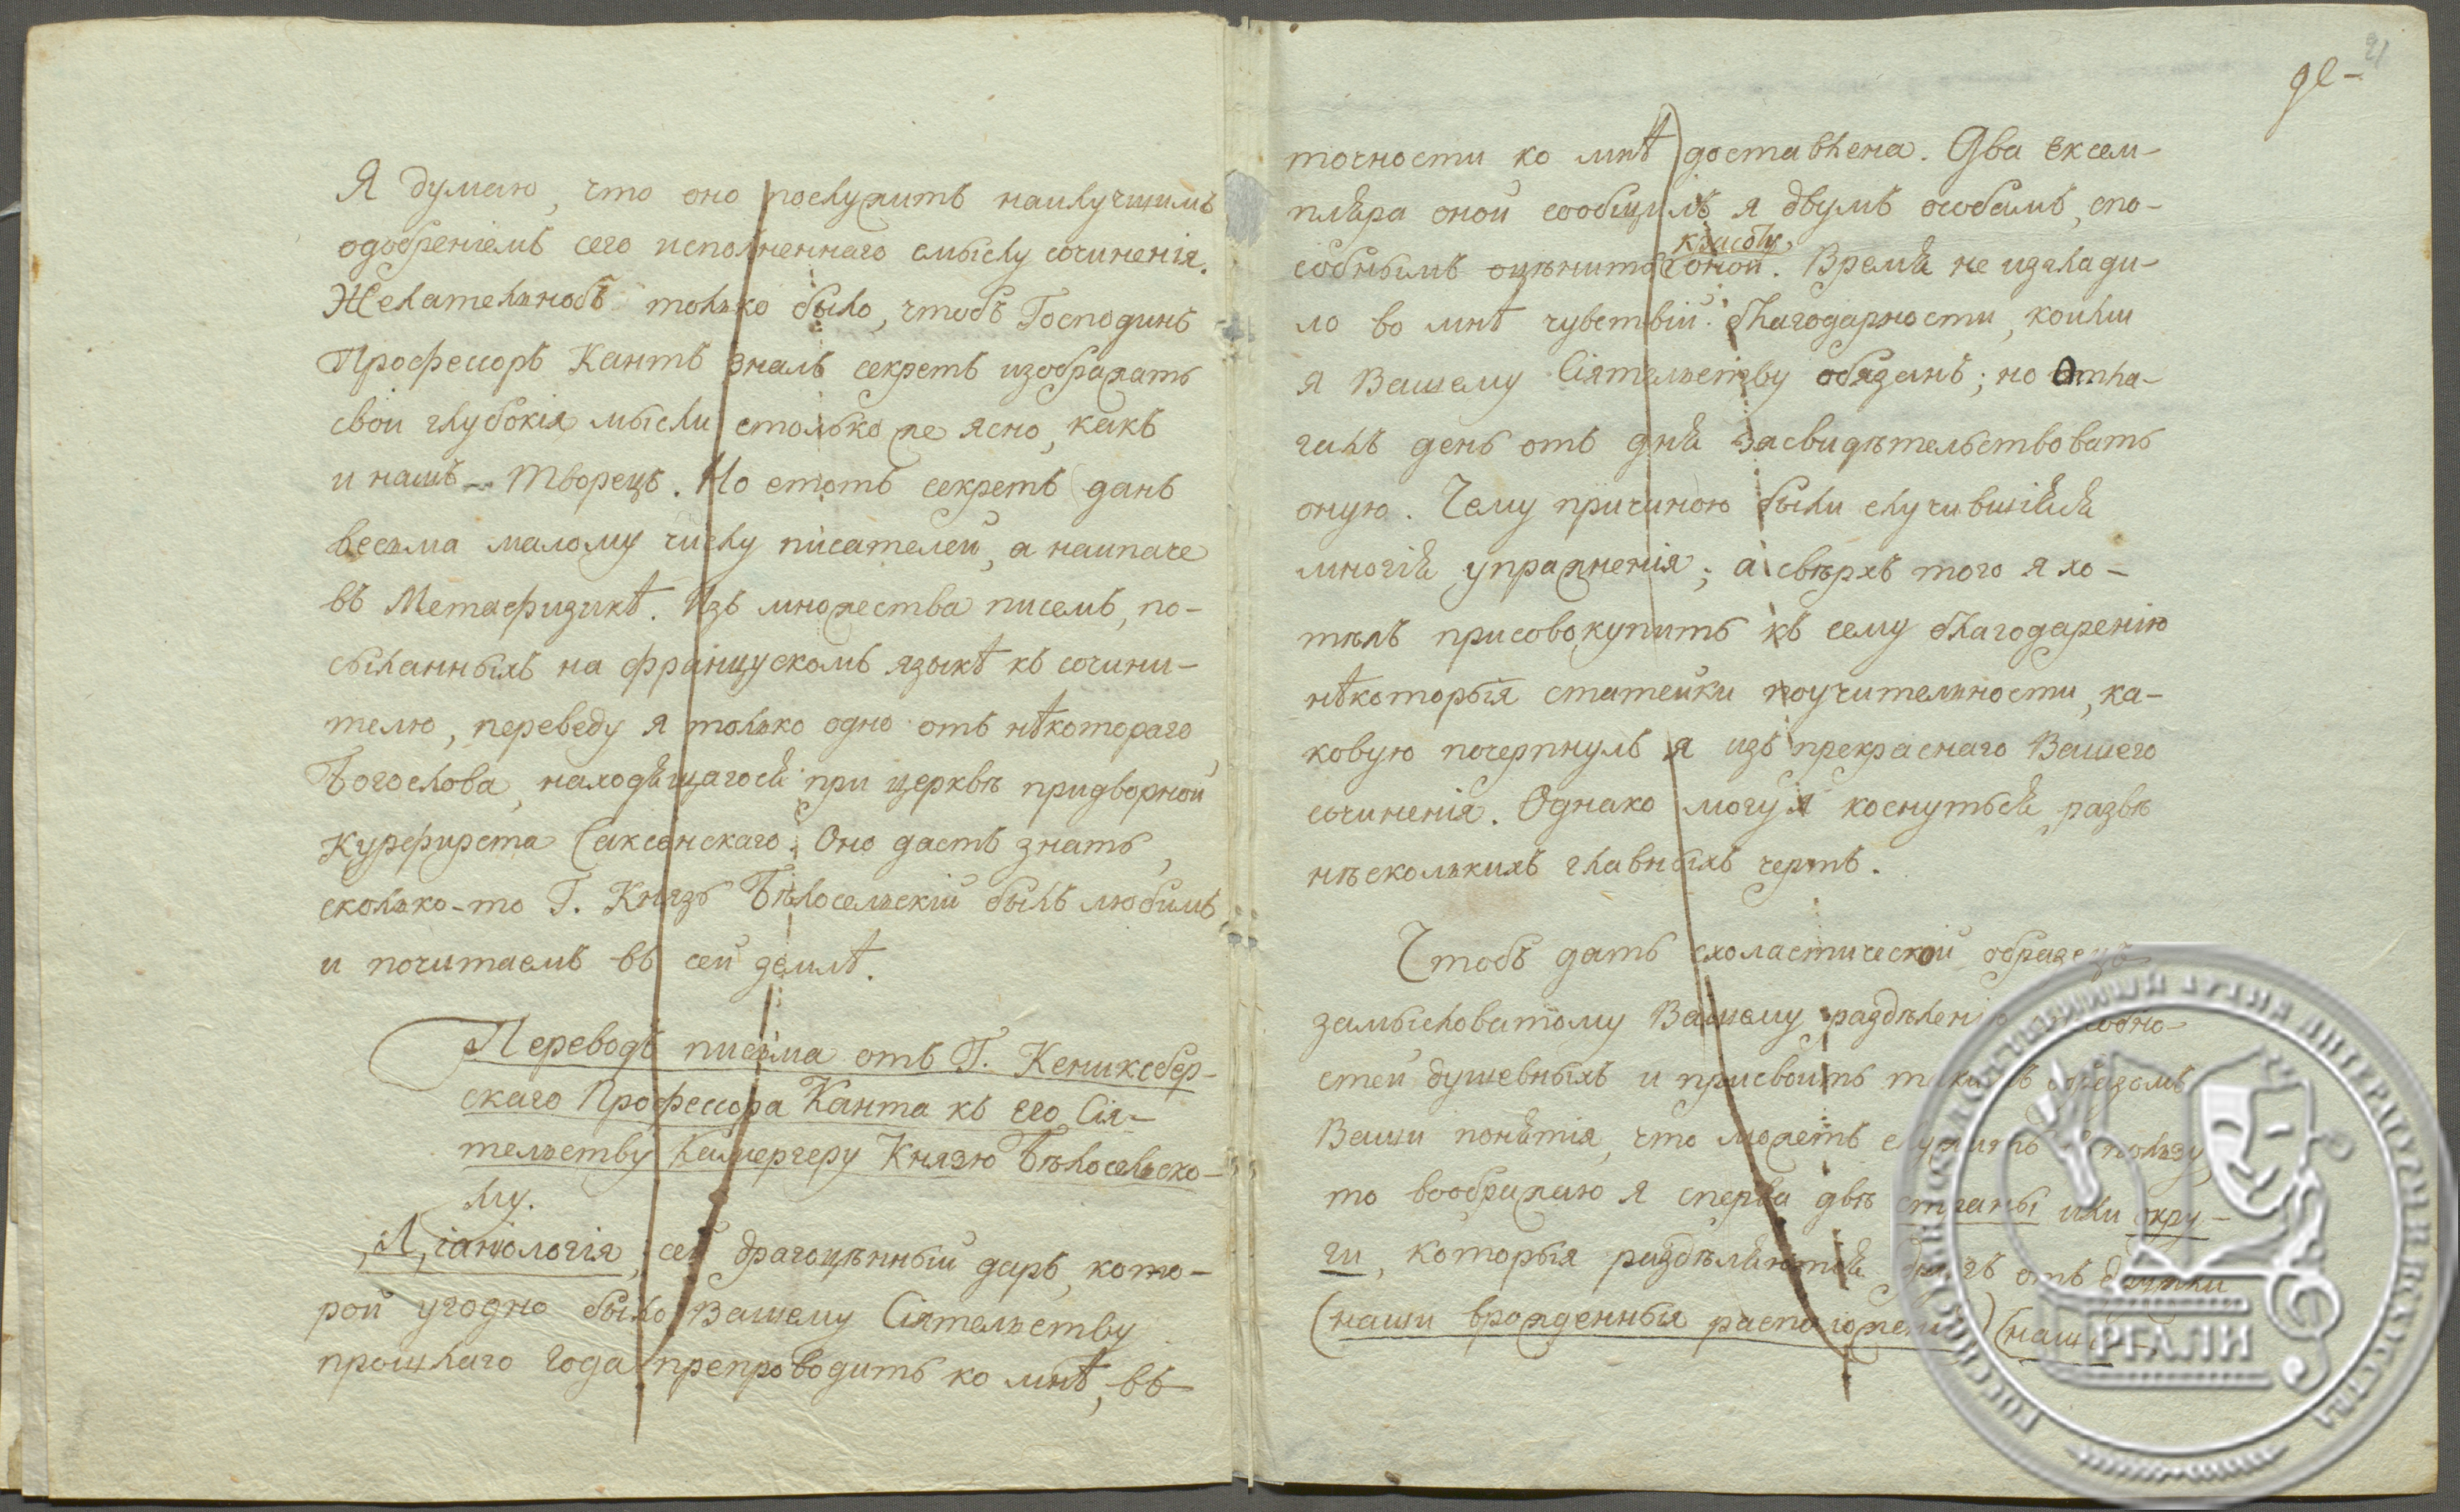 Я думаю, что оно послужитъ наилучшимъ
одобреніемъ сего исполненнаго смыслу сочиненія.
Желательнобъ только было, чтобъ Господинъ
Профессоръ Кантъ зналъ секретъ изображать
свои глубокія мысли столько же ясно, какъ
и нашъ Творецъ. Но етотъ секретъ данъ
весьма малому числу писателей, а наипаче
въ Метафизикѣ. Изъ множества писемъ, по-
сыланныхъ на француcкомъ языкѣ къ сочини-
телю, переведу я только одно отъ нѣкотораго
Богослова, находящагося при церквѣ придворной
Курфирста Саксонскаго. Оно дастъ знать,
сколько-то Г. Князь Бѣлосельскій былъ любимъ
и почитаемъ въ сей землѣ.
Переводъ письма отъ Г. Кениксбер-
скаго Профессора Канта къ Его Сія-
тельству Камергеру Князю Бѣлосельско-
му.
Діаніологія, сей драгоцѣнный даръ, кото-
рой угодно было Вашему Сіятельству
прошлаго года препроводить ко мнѣ, въ
21
де-
точности ко мнѣ доставлена. Два ексем-
пляра оной сообщилъ я двумъ особамъ, спо-
красоту
собнымъ оцѣнить оной. Время не изглади-
ло во мнѣ чувствій благодарности, коими
я Вашему Сіятельству обязанъ; но отла-
галъ день отъ дня засвидѣтельствовать
оную. Чему причиною были случившіяся
многія упражненія; а сверхъ того я хо-
тѣлъ присовокупить къ сему благодаренію
нѣкоторыя статейки поучительности, ка-
ковую почерпнулъ я изъ прекраснаго Вашего
сочиненія. Однако могу я коснуться развѣ
нѣсколькихъ главныхъ чертъ.
Чтобъ дать схоластической образецъ
замысловатому Вашему раздѣленію
стей душевныхъ и присвоить такимъ образомъ
Ваши понятія, что можетъ служить пользу
то воображаю я сперва двѣ страны или окру-
ги, которыя раздѣляются другъ отъ дружки
(наши врожденныя расположенія) (наши
РГАЛИ
РОССИЙСКИЙ ГОСУДАРСТВЕННЫЙ АРХИВ ЛИТЕРАТУРЫ И ИСКУССТВА